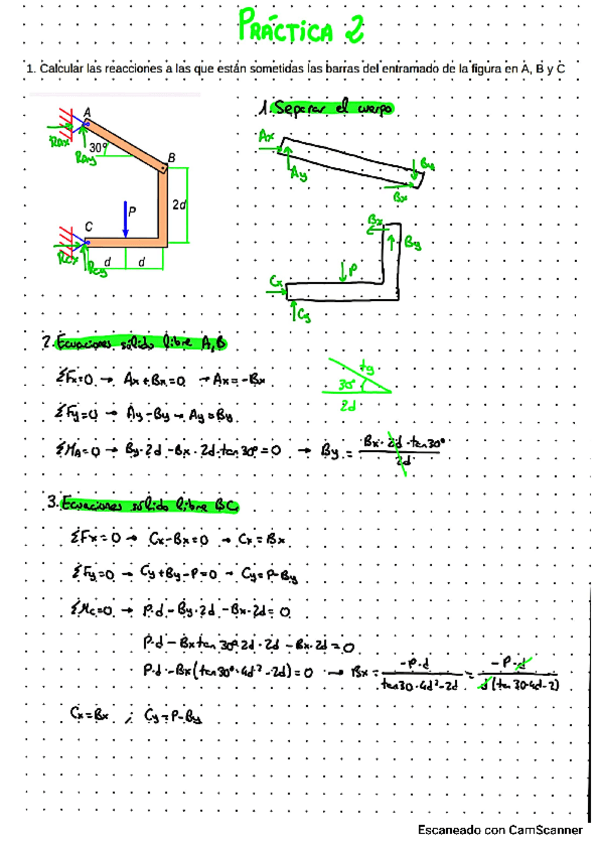 PRÁCTICA 2
1. Calcular las reacciones a las que están sometidas las barras del entramado de la figura en A, B y C
1. Separar el cuerpo
A
RAx
RAy
30º
B
2d
P
C
RCx
RCy
d
d
Ax
Ay
By
Bx
Bx
By
P
Cx
Cy
2. Ecuaciones sólido libre A,B
ΣFx=0 → Ax+Bx=0 → Ax=-Bx
ΣFy=0 → Ay-By → Ay=By
ΣMA=0 → By·2d-Bx·2d·tan30º=0 → By = Bx·2d·tan30º / 2d
ty
30º
2d
3. Ecuaciones sólido libre BC
ΣFx=0 → Cx-Bx=0 → Cx=Bx
ΣFy=0 → Cy+By-P=0 → Cy=P-By
ΣMc=0 → P·d-By·2d-Bx·2d=0
P·d-Bxtan30º·2d·2d-Bx·2d=0
P·d-Bx(tan30º·4d²-2d)=0 → Bx = -P·d / tan30·4d²-2d = -P·d / d(tan30·4d-2)
Cx=Bx ; Cy=P-By
Escaneado con CamScanner